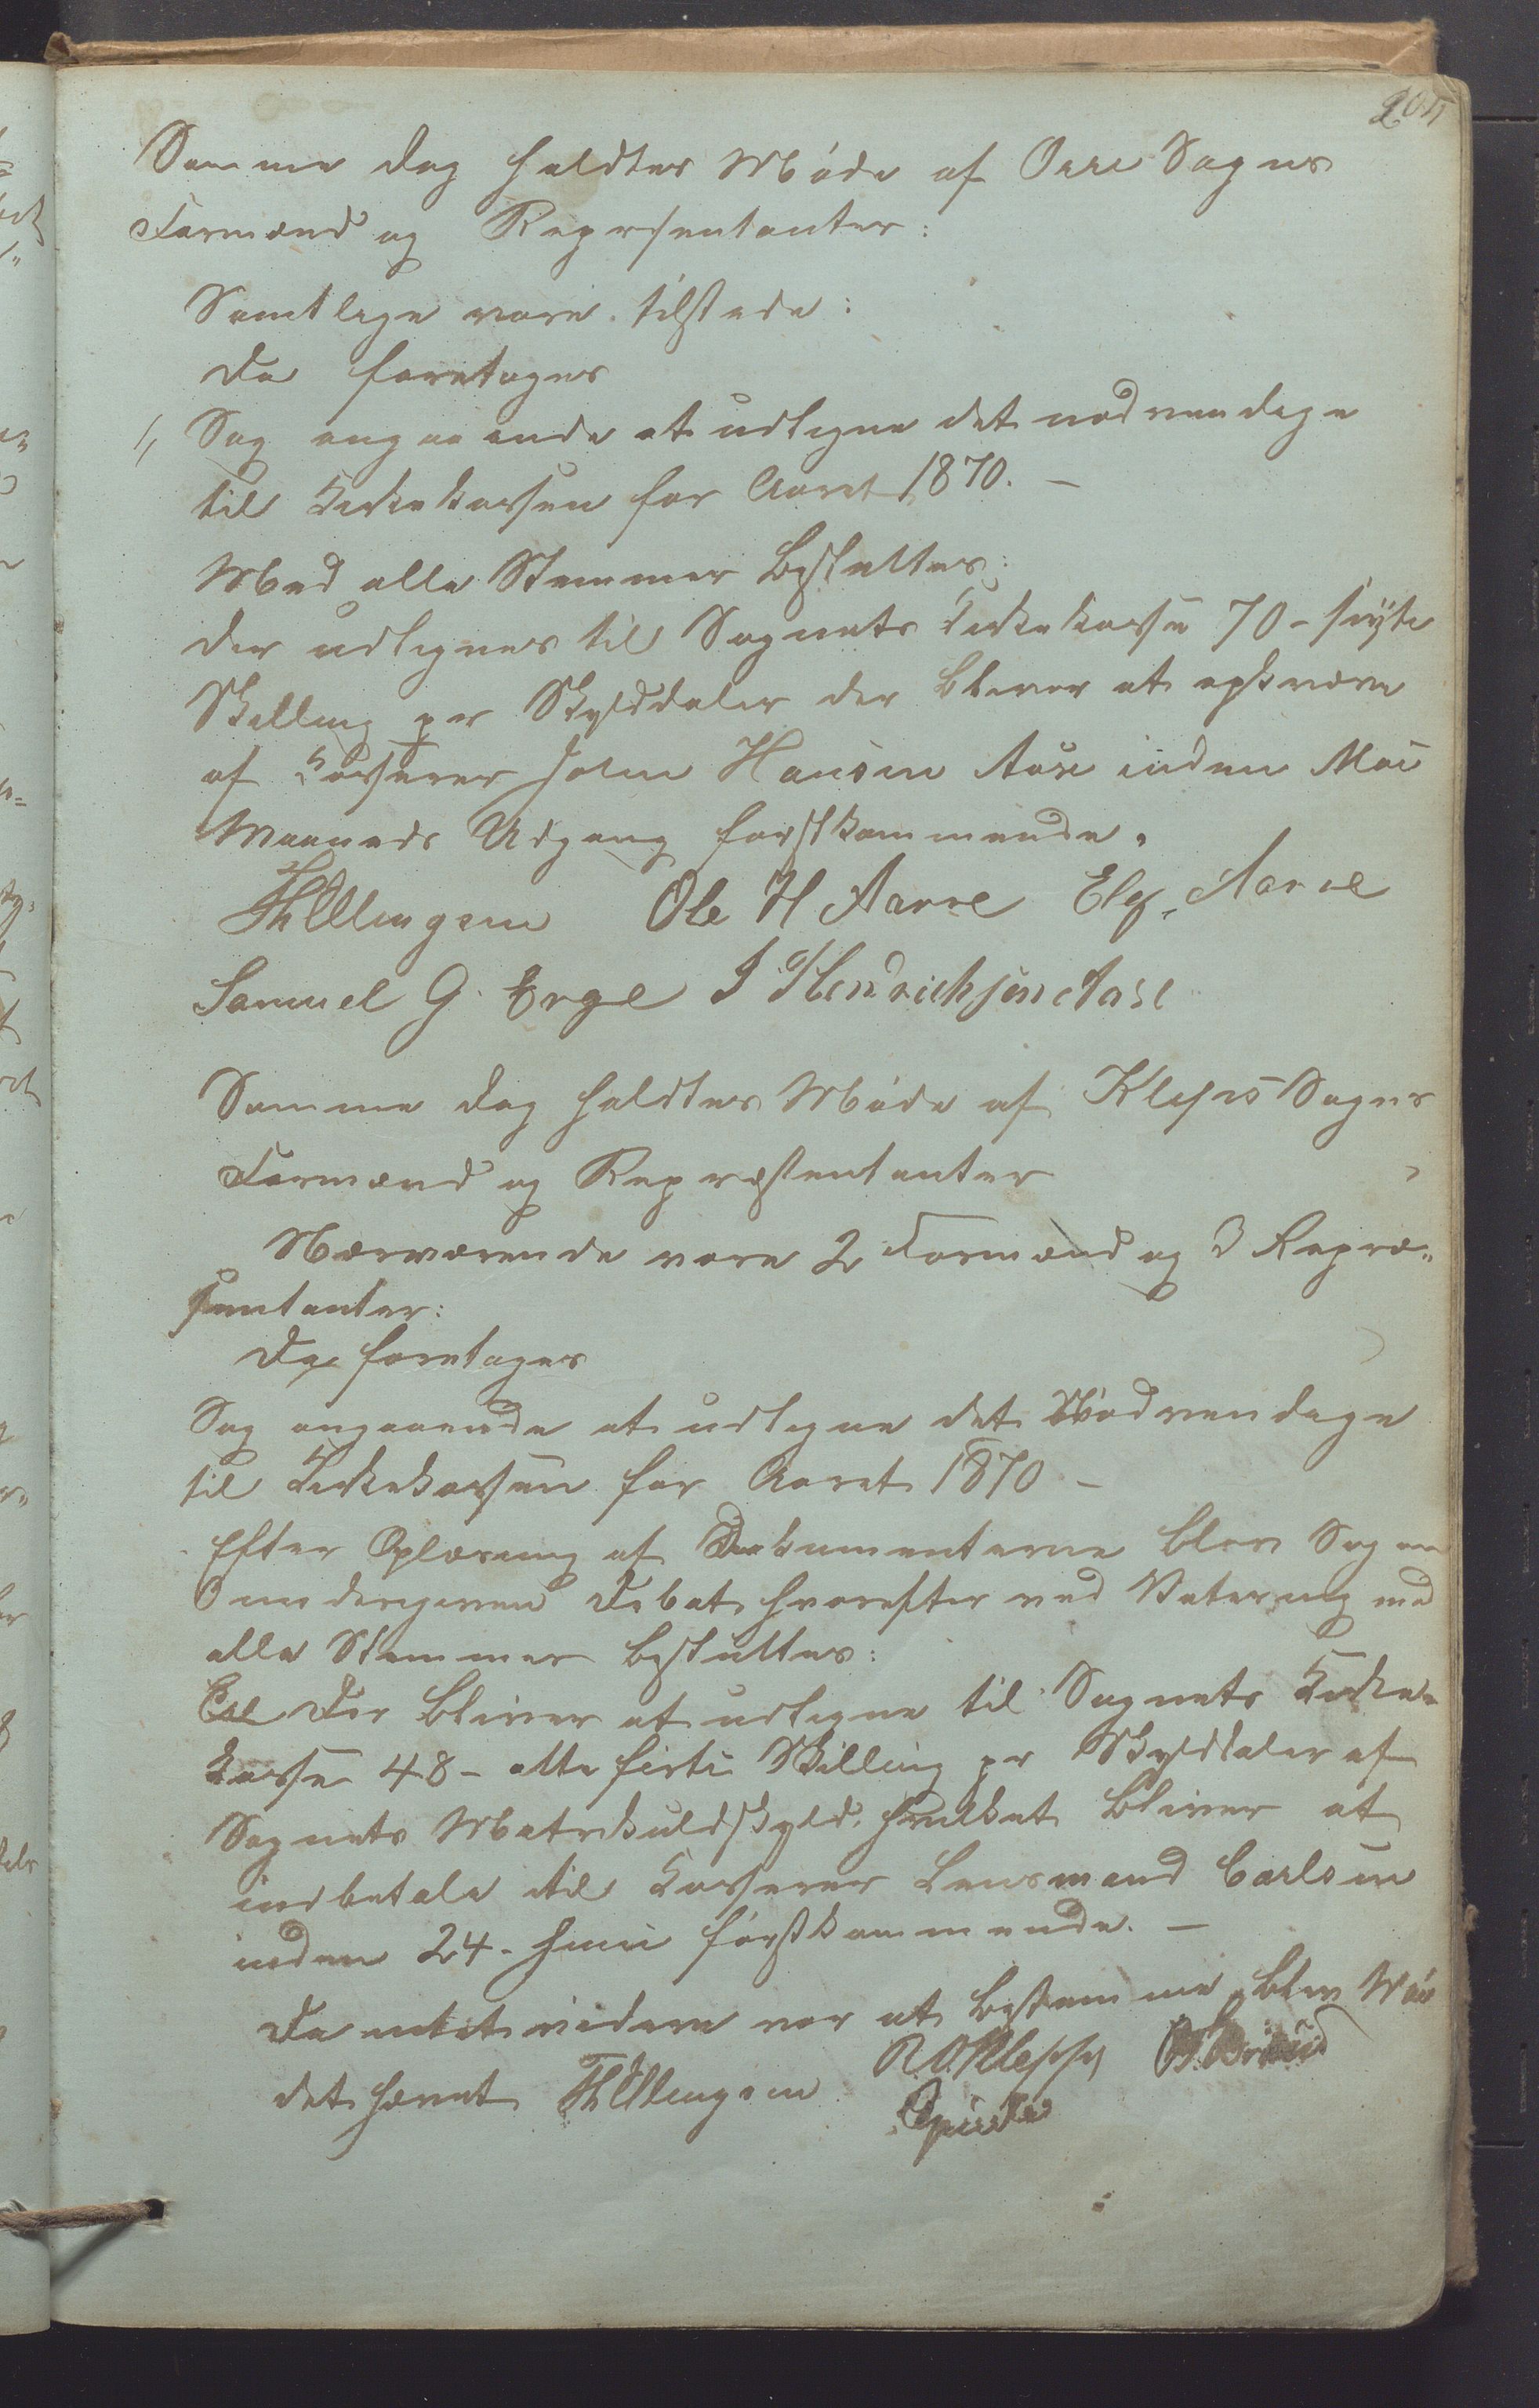 Samme Dag holdtes Møde af Orre Sogns
Formænd og Reprsentanter:
Samtlige vare tilstede:
Da foretages
1, Sag angaaende at udligne det nødvendige
til Kirkekassen for Aaret 1870. —
Med alle Stemmer besluttes:
Der udlignes til Sognets Kirkekasse 70 - sÿti
Skilling pr Skylddaler der bliver at opkræve
af Kasserer John Hansen Aase inden Mai
Maaneds Udgang førstkommende.
Ole H Aarre Aarre
Samuel G. Erge J Hendrichsen Aase
Samme Dag holdtes Møde af Kleps Sogns
Formænd og Repræsentanter
Nærværende vare 2 Formænd og 3 Repræ-
sentanter:
Da foretages
Sag angaaende at udligne det Nødvendige
til Kirkekassen for Aaret 1870 —
Efter Oplæsning af Dokumenterne blev Sagen
undergiven Debat hvorefter ved Votering med
alle Stemmer besluttes:
Der bliver at udligne til Sognets Kirke-
kasse 48 - otte firti Skilling pr Skylddaler af
Sognets Matrikulskyld, hvilket bliver at
indbetale til Kasserer Lensmand Carlsen
inden 24 - Juni førstkommende. —
Da intet videre var at bestemme blev Mø
det hævet R O Klepp